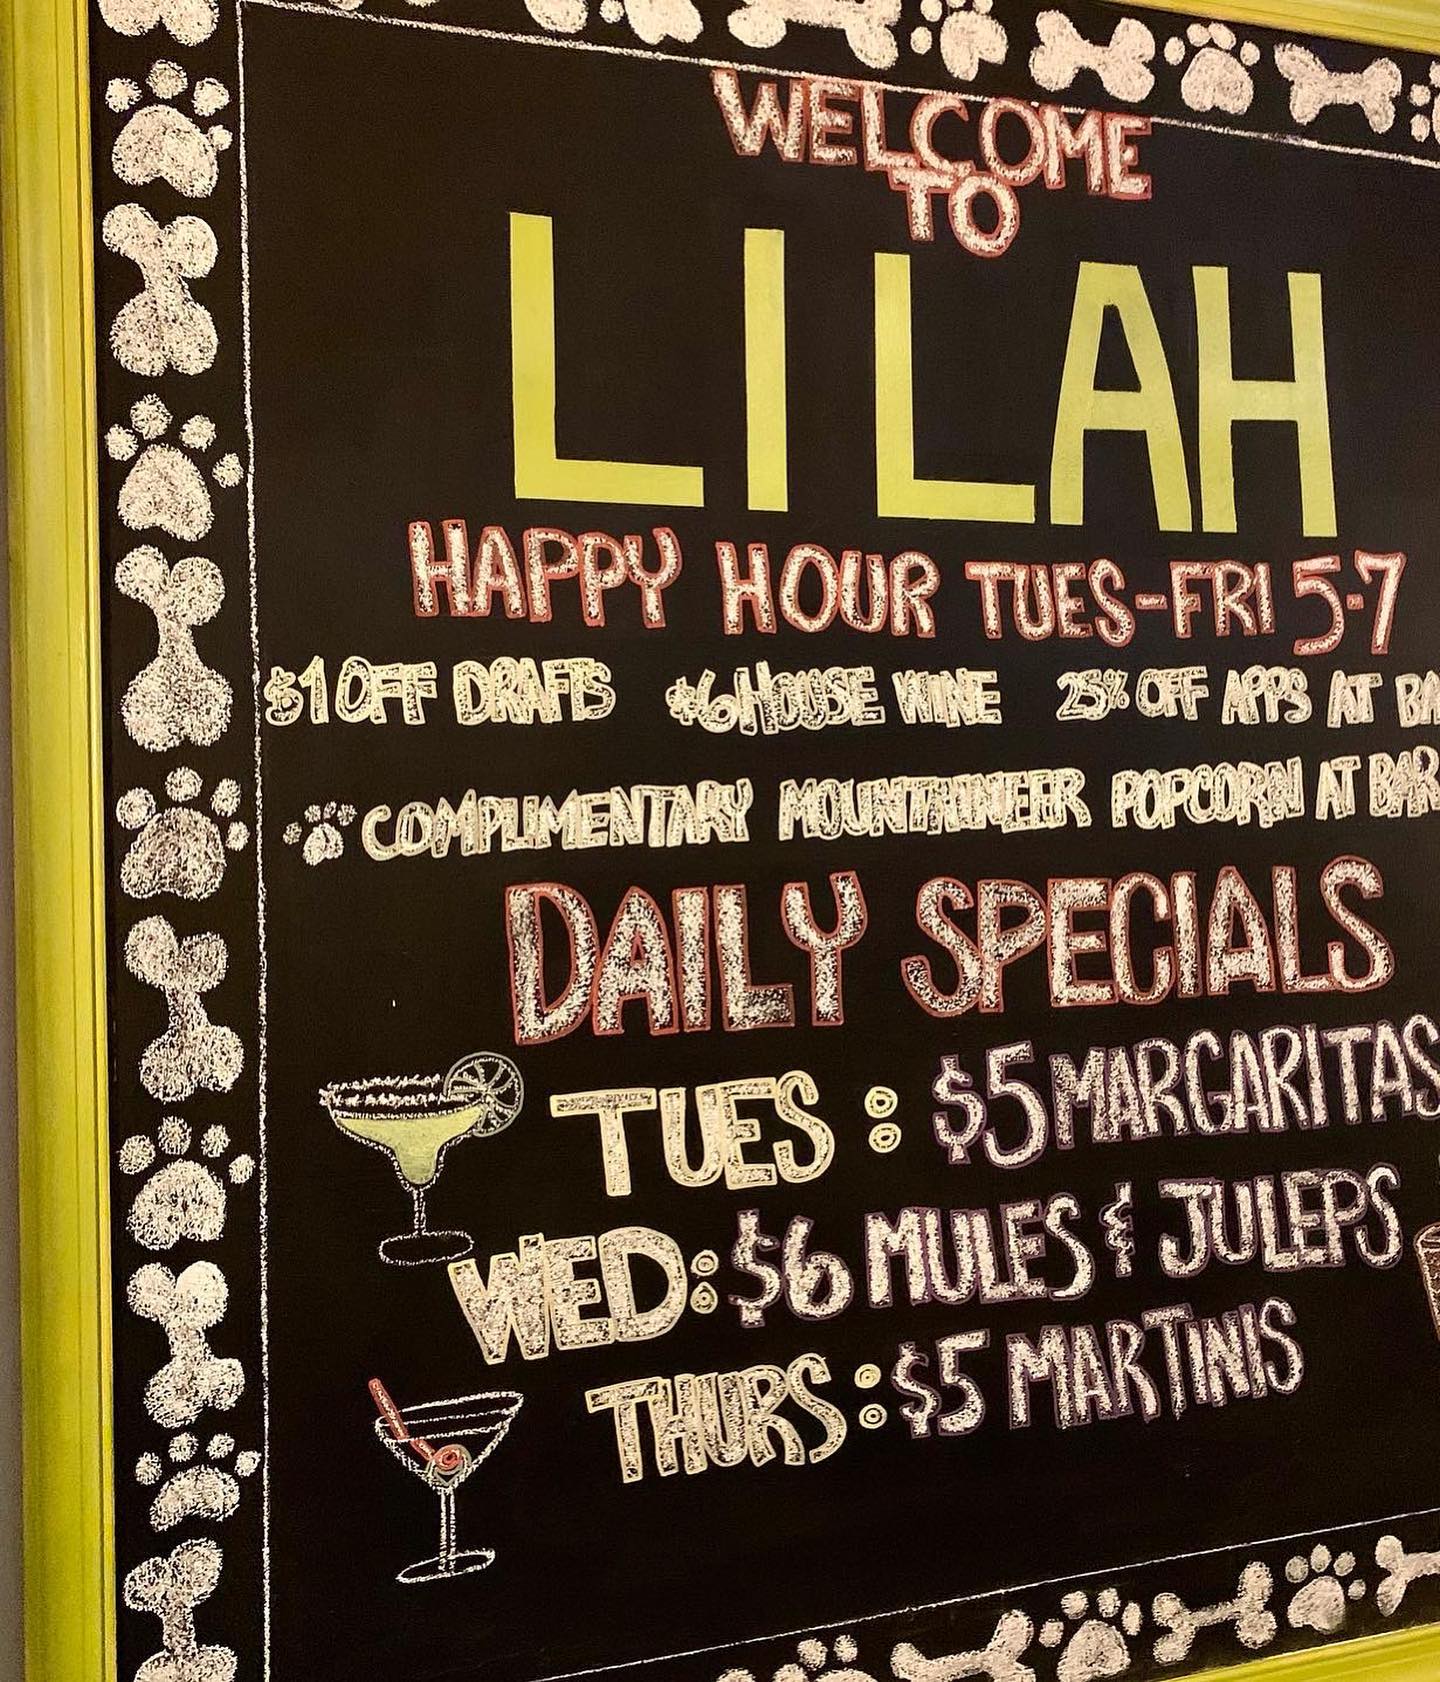 WELCOME
TO
LILAH
HAPPY HOUR TUES-FRI 5-7
$1 OFF DRAFTS $6 HOUSE WINE 25% OFF APPS AT BA
COMPLIMENTARY MOUNTAINEER POPCORN AT BAR
DAILY SPECIALS
TUES: $5 MARGARITAS
WED: $6 MULES & JULEPS
THURS: $5 MARTINIS